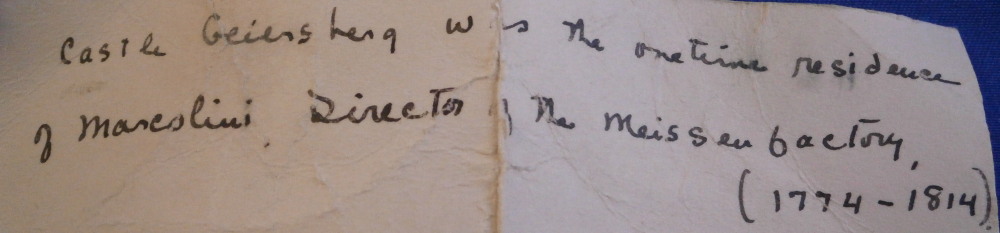 Castle Geiersberg was the onetime residence
of Marcolini, Director of the Meissen factory,
(1774-1814).